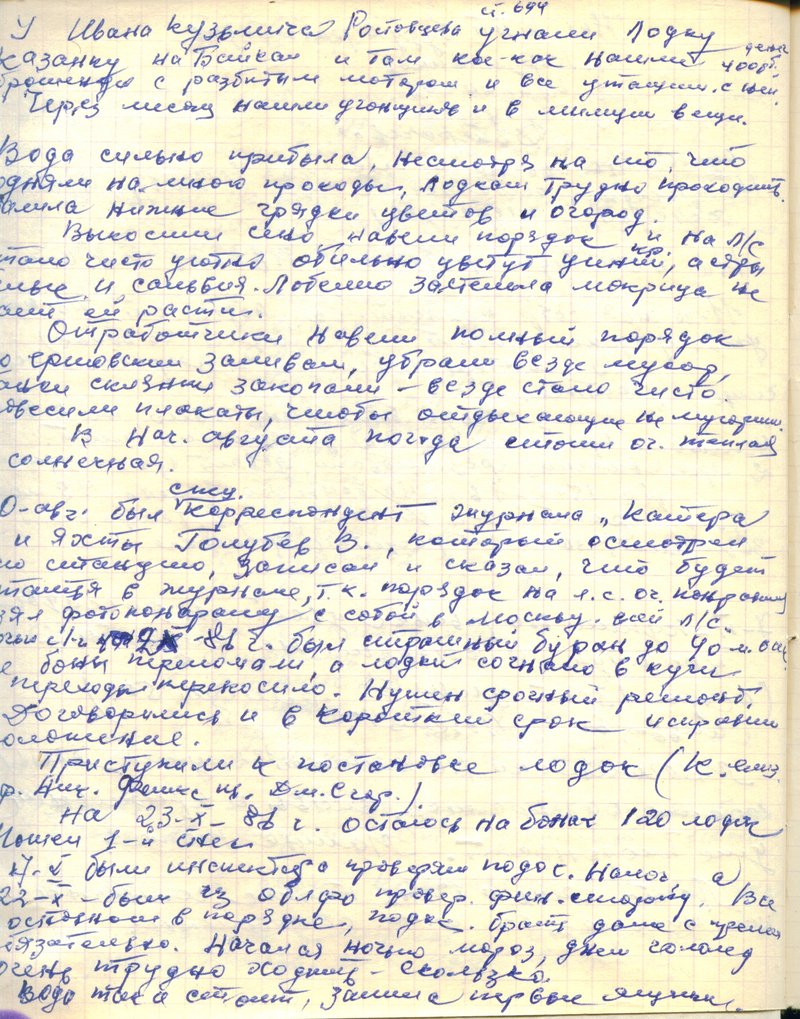 ст. 694
У Ивана Кузьмича Ростовцева угнали Лодку
Казанку на Байкал и там кое-как нашли
с разбитым мотором и все утащили с ней.
Через месяц нашли угонщиков и в милиции вещи.
Вода сильно прибыла, несмотря на то, что
подняли на много проходы, Лодкам трудно проходить.
нижние грядки цветов и огород.
Выкосили сено навели порядок и на л/с
стало чисто уютно обильно цветут циний, астры
и сальвия. Лобелию застелила мокрица не
дает ей расти.
Отработчики навели полный порядок
по ершовским заливам, убрали везде мусор,
банки склянки закопали – везде стало чисто.
повесили плакаты, чтобы отдыхающие не мусорили.
В нач. августа погода стоит оч. теплая
солнечная.
0-авг. был корреспондент журнала „Катера
и Яхты Голубев В., который осмотрел
станцию, записал и сказал, что будет
в журнале, т.к. порядок на л.с. оч. понравился
взял фотопанораму с собой в Москву. всей л/с.
86 г. был страшный буран до 40 м. сек
боны переломали, а лодки согнало в кучи
переходы перекосило. Нужен срочный ремонт.
Договорились и в короткий срок исправили
положение.
Приступили к постановке лодок (К.
На 23-X-86 г. осталось на бонах 120 лодок
Пошел 1-й снег
были инспектора проверяли подох. Налог а
22-X- были из облфо провер. фин. Все
остальное в порядке, подох. брать даже с
обязательно. Начался ночью мороз, днем гололед
очень трудно ходить – скользко.
Вода так и стоит, залила первые ящики.